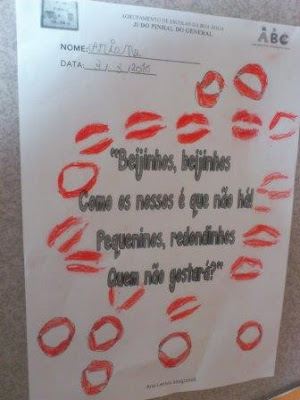 AGRUPAMENTO DE ESCOLAS DA BOA ÁGUA
JI DO PINHAL DO GENERAL
ABC
NOME:
DATA:
"Beijinhos, beijinhos
Como os nossos é que não há!
Pequeninos, redondinhos
Quem não gostará?"